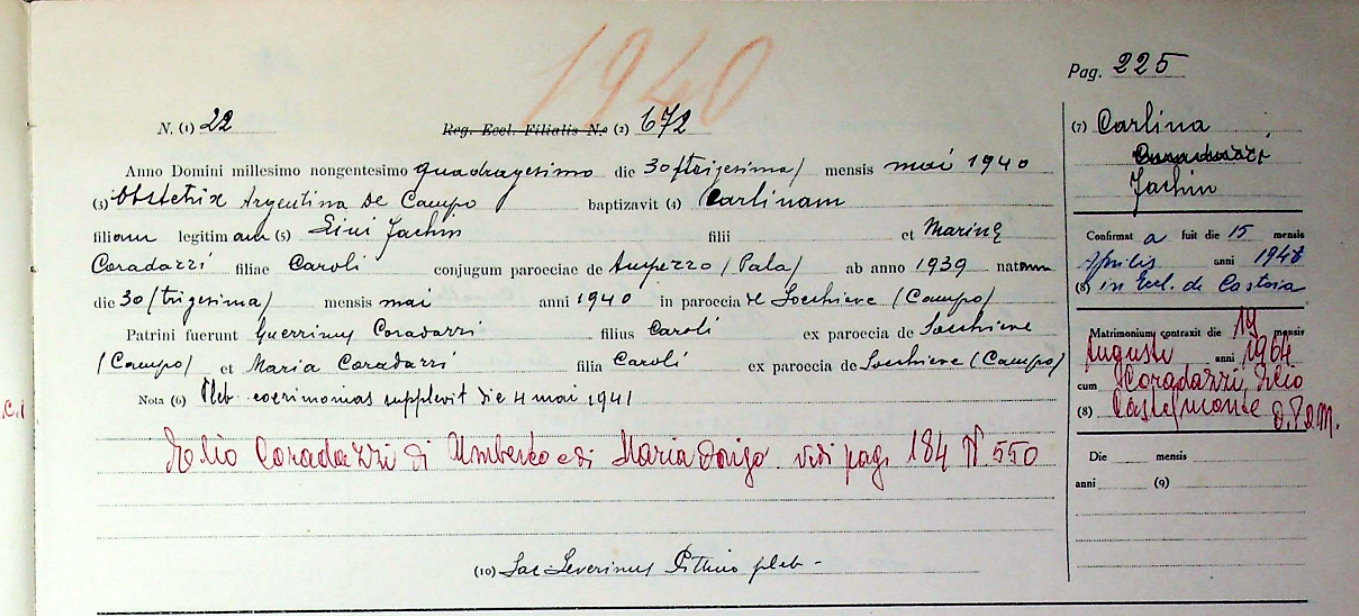 1940
Pag. 225
N. (1) 22 Reg. Eccl. Filialis N.o (2) 672
Anno Domini millesimo nongentesimo quadragesimo die 30 (trigesima) mensis mai 1940
(3) Obstetrix Argentina De Campo baptizavit (4) Carlinam
filiam legitimam (5) Lini Jachin filii et Marinę
Coradazzi filiae Caroli conjugum paroeciae de Ampezzo (Pala) ab anno 1939 natam
die 30 (trigesima) mensis mai anni 1940 in paroecia de Socchieve (Campo)
Patrini fuerunt Guerrinus Coradazzi filius Caroli ex paroecia de Socchieve
(Campo) et Maria Coradazzi filia Caroli ex paroecia de Socchieve (Campo)
Nota (6) Pleb. coerimonias supplevit die 4 mai 1941
Elio Coradazzi di Umberto e di Maria Dorigo vedi pag. 184 N. 550
(10) Sac. Severinus pleb -
(7) Carlina
Coradazzi
Jachin
Confirmata fuit die 15 mensis
Aprilis anni 1948
(8) in Eccl. de Castoia
Matrimonium contraxit die 19 mensis
Augusti anni 1964
cum Coradazzi Elio
(8) Castelmonte
Die mensis
anni (9)